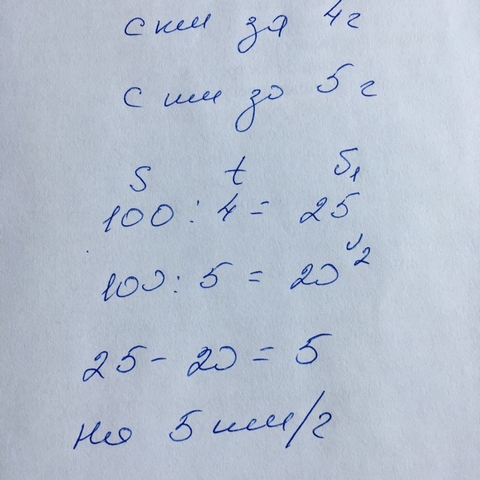 с км за 4 г
с км зо 5 г
S t v1
100 : 4 = 25
100 : 5 = 20 v2
25 - 20 = 5
На 5 км/г